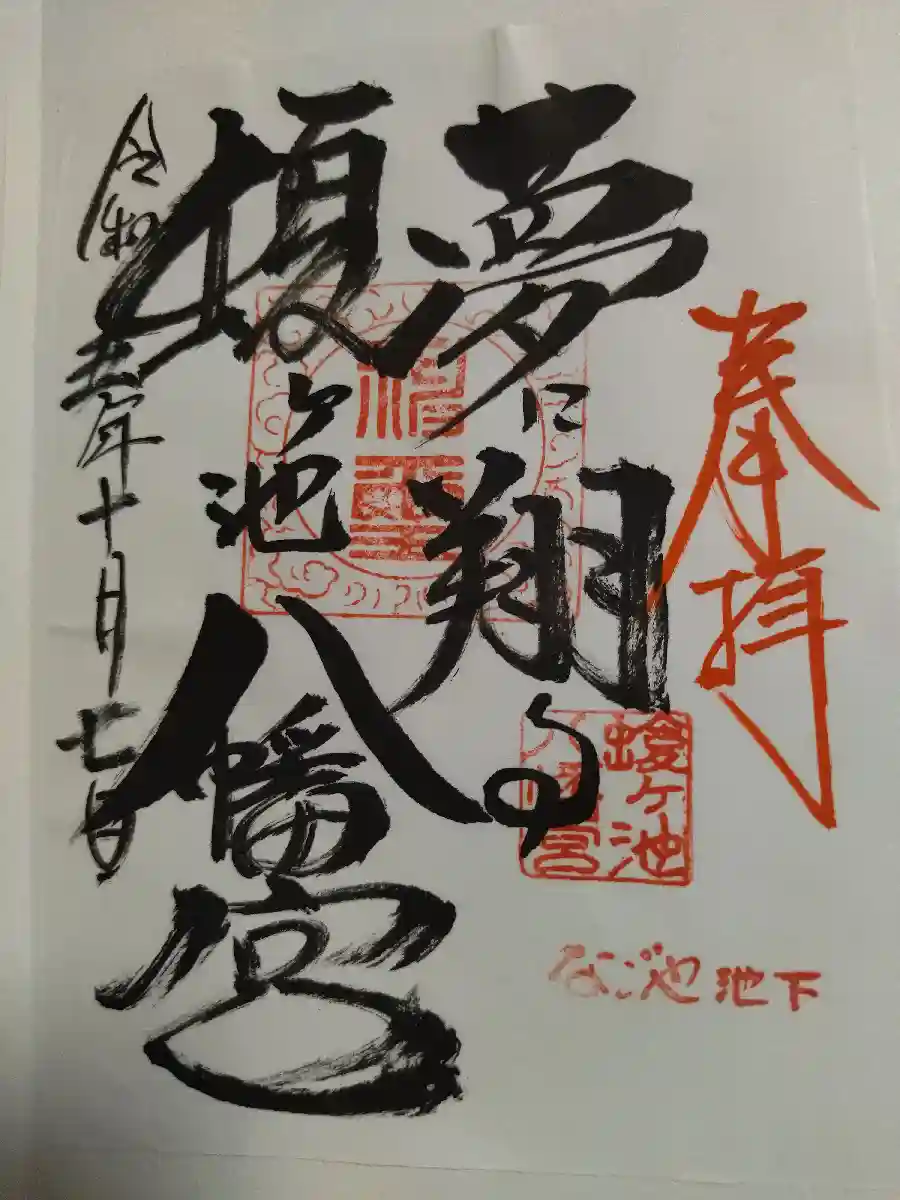 奉拝
夢に翔る
蝮ヶ池
八幡宮
令和五年十月七日
蝮ヶ池
八幡宮
なごや池下